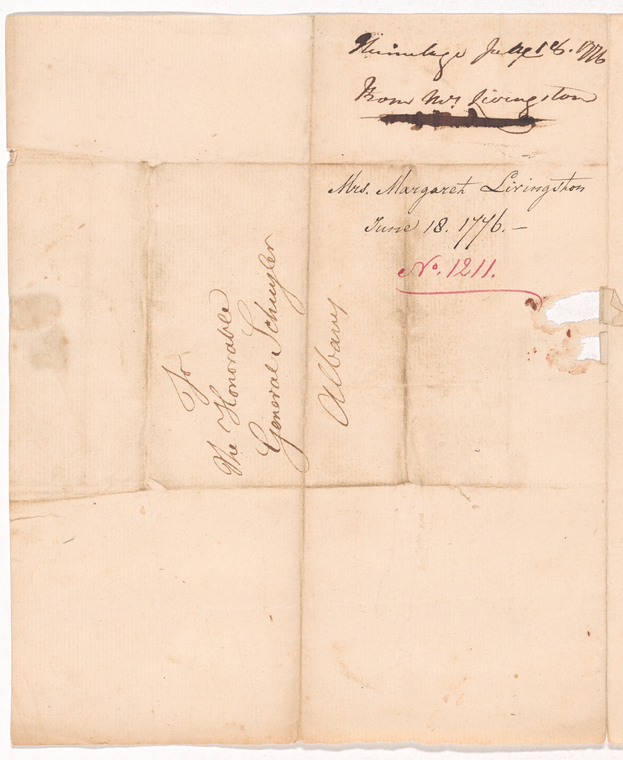 18. 1776
From Mrs Livingston
Mrs. Margaret Livingston
June 18. 1776. –
No. 1211.
To
The Honorable
General Schuyler
Albany